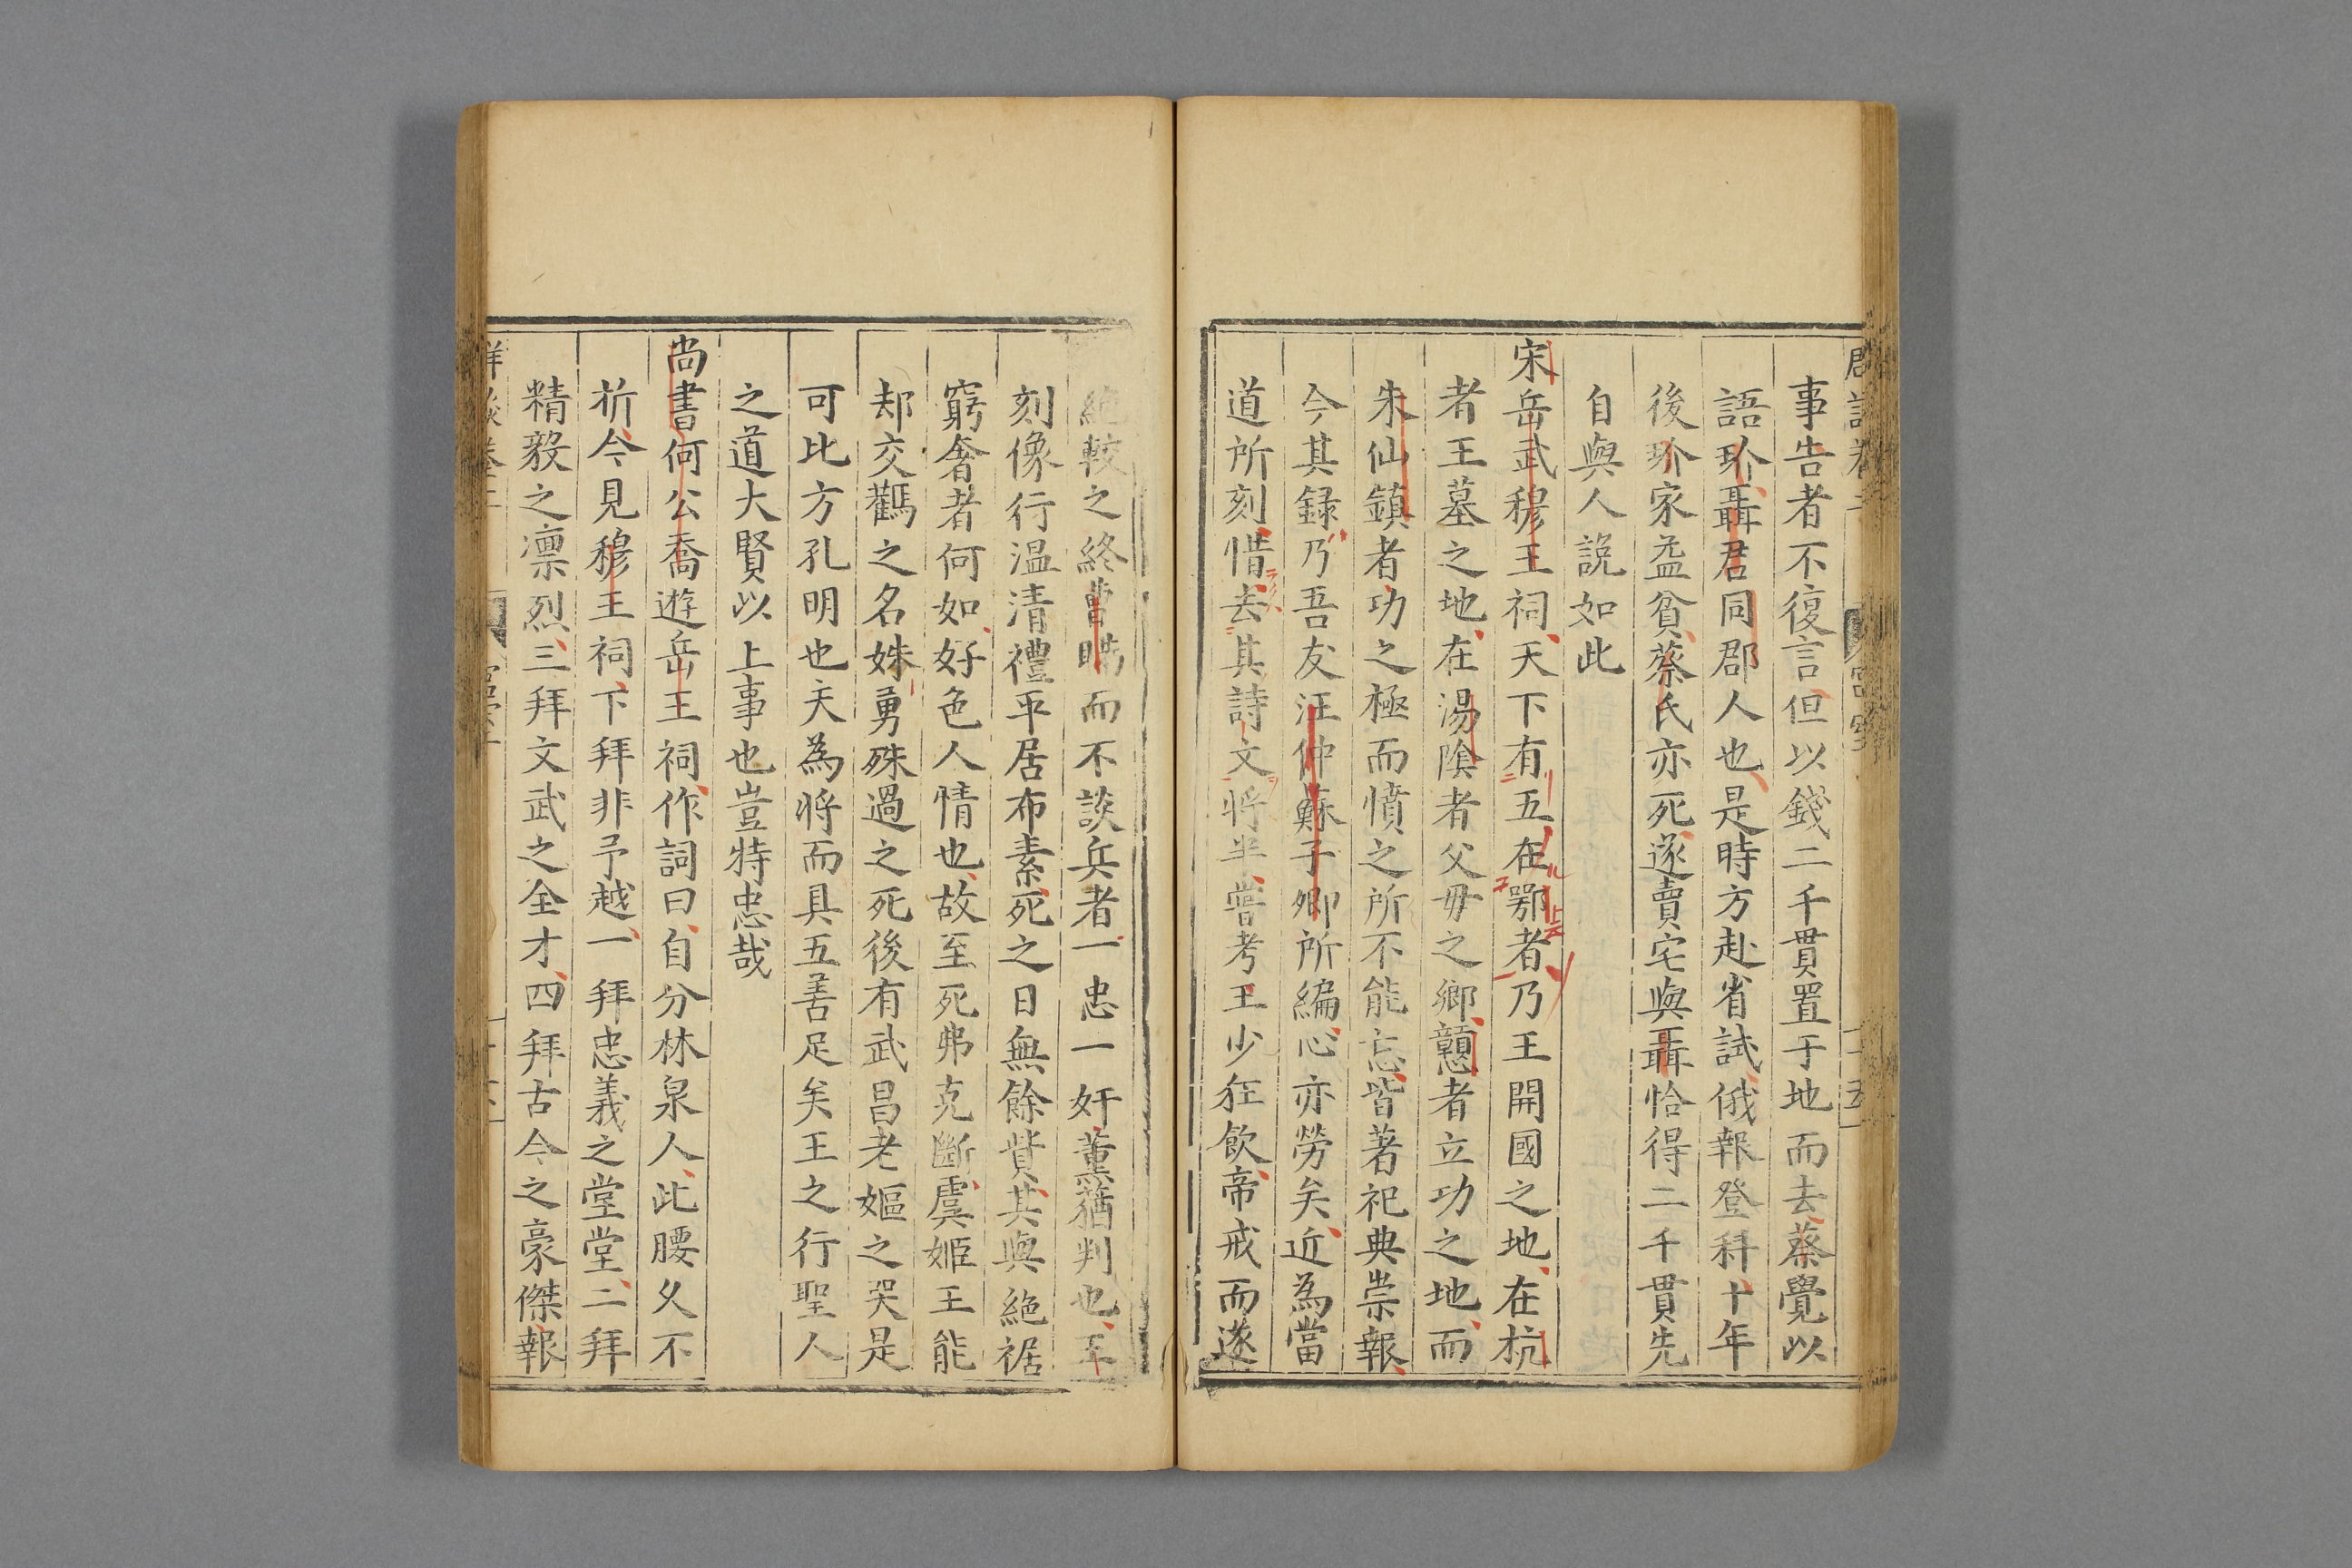 事告者不復言但以錢二千貫置于地而去蔡覺以
語玠聶君同郡人也是時方赴省試俄報登科十年
後玠家益貧蔡氏亦死遂賣宅與聶恰得二千貫先
自與人說如此
宋岳武穆王祠天下有五在鄂者乃王開國之地在杭
者王墓之地在湯隂者父毋之鄉而
朱仙鎮者功之極而憤之所不能忘皆著祀典崇報
今其録乃吾友汪仲蘇子卿所編心亦勞矣近為當
道所刻惜去其詩文將半嘗考王少狂飲帝戒而遂
絶較之終曹瞞而不談兵者一忠一奸薰蕕判也王
刻像行温清禮平居布素死之日無餘貲其與絶裾
窮奢者何如好色人情也故至死弗克斷虞姬王能
却交驩之名姝勇殊過之死後有武昌老嫗之哭是
可比方孔明也夫為將而具五善足矣王之行聖人
之道大賢以上事也豈特忠哉
尚書何公喬遊岳王祠作詞曰自分林泉人此腰久不
折今見穆王祠下拜非予越一拜忠義之堂堂二拜
精毅之凛烈三拜文武之全才四拜古今之豪傑報